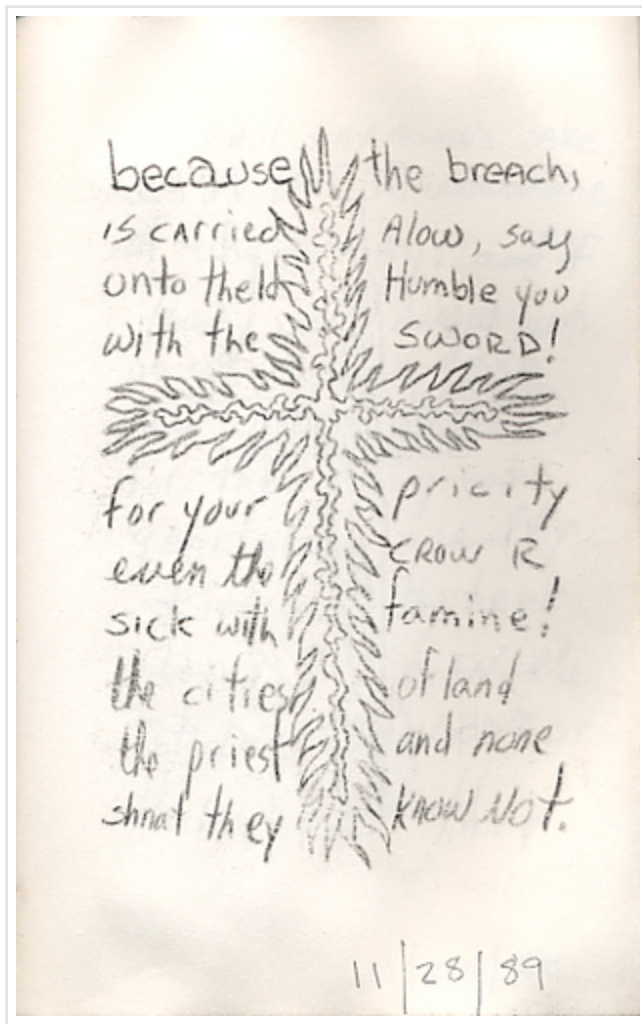 because the breach,
is carried Alow, say
unto theld Humble you
with the SWORD!
for your pricity
even the CROW R
sick with famine!
the cities of land
the priest and none
shnat they know Not.
11/28/89